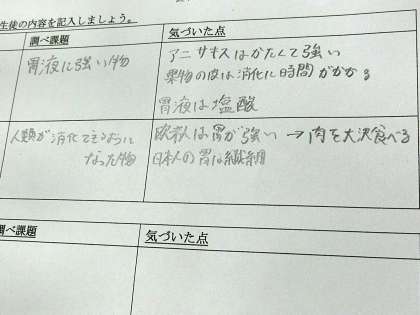 生徒の内容を記入しましょう。
調べ課題
気づいた点
胃液に強い物
アニサキスはかたくて強い
果物の皮は消化に時間がかかる
胃液は塩酸
人類が消化できるように
なった物
欧米人は胃が強い → 肉を大沢食べる
日本人の胃は繊細
調べ課題
気づいた点